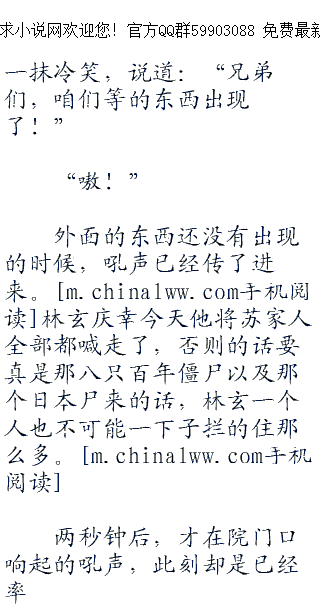 求小说网欢迎您! 官方QQ群59903088 免费最新
一抹冷笑，说道：“兄弟
们，咱们等的东西出现
了！”
“嗷！”
外面的东西还没有出现
的时候，吼声已经传了进
来。[m.china1ww.com手机阅
读]林玄庆幸今天他将苏家人
全部都喊走了，否则的话要
真是那八只百年僵尸以及那
个日本尸来的话，林玄一个
人也不可能一下子拦的住那
么多。[m.china1ww.com手机
阅读]
两秒钟后，才在院门口
响起的吼声，此刻却是已经
率